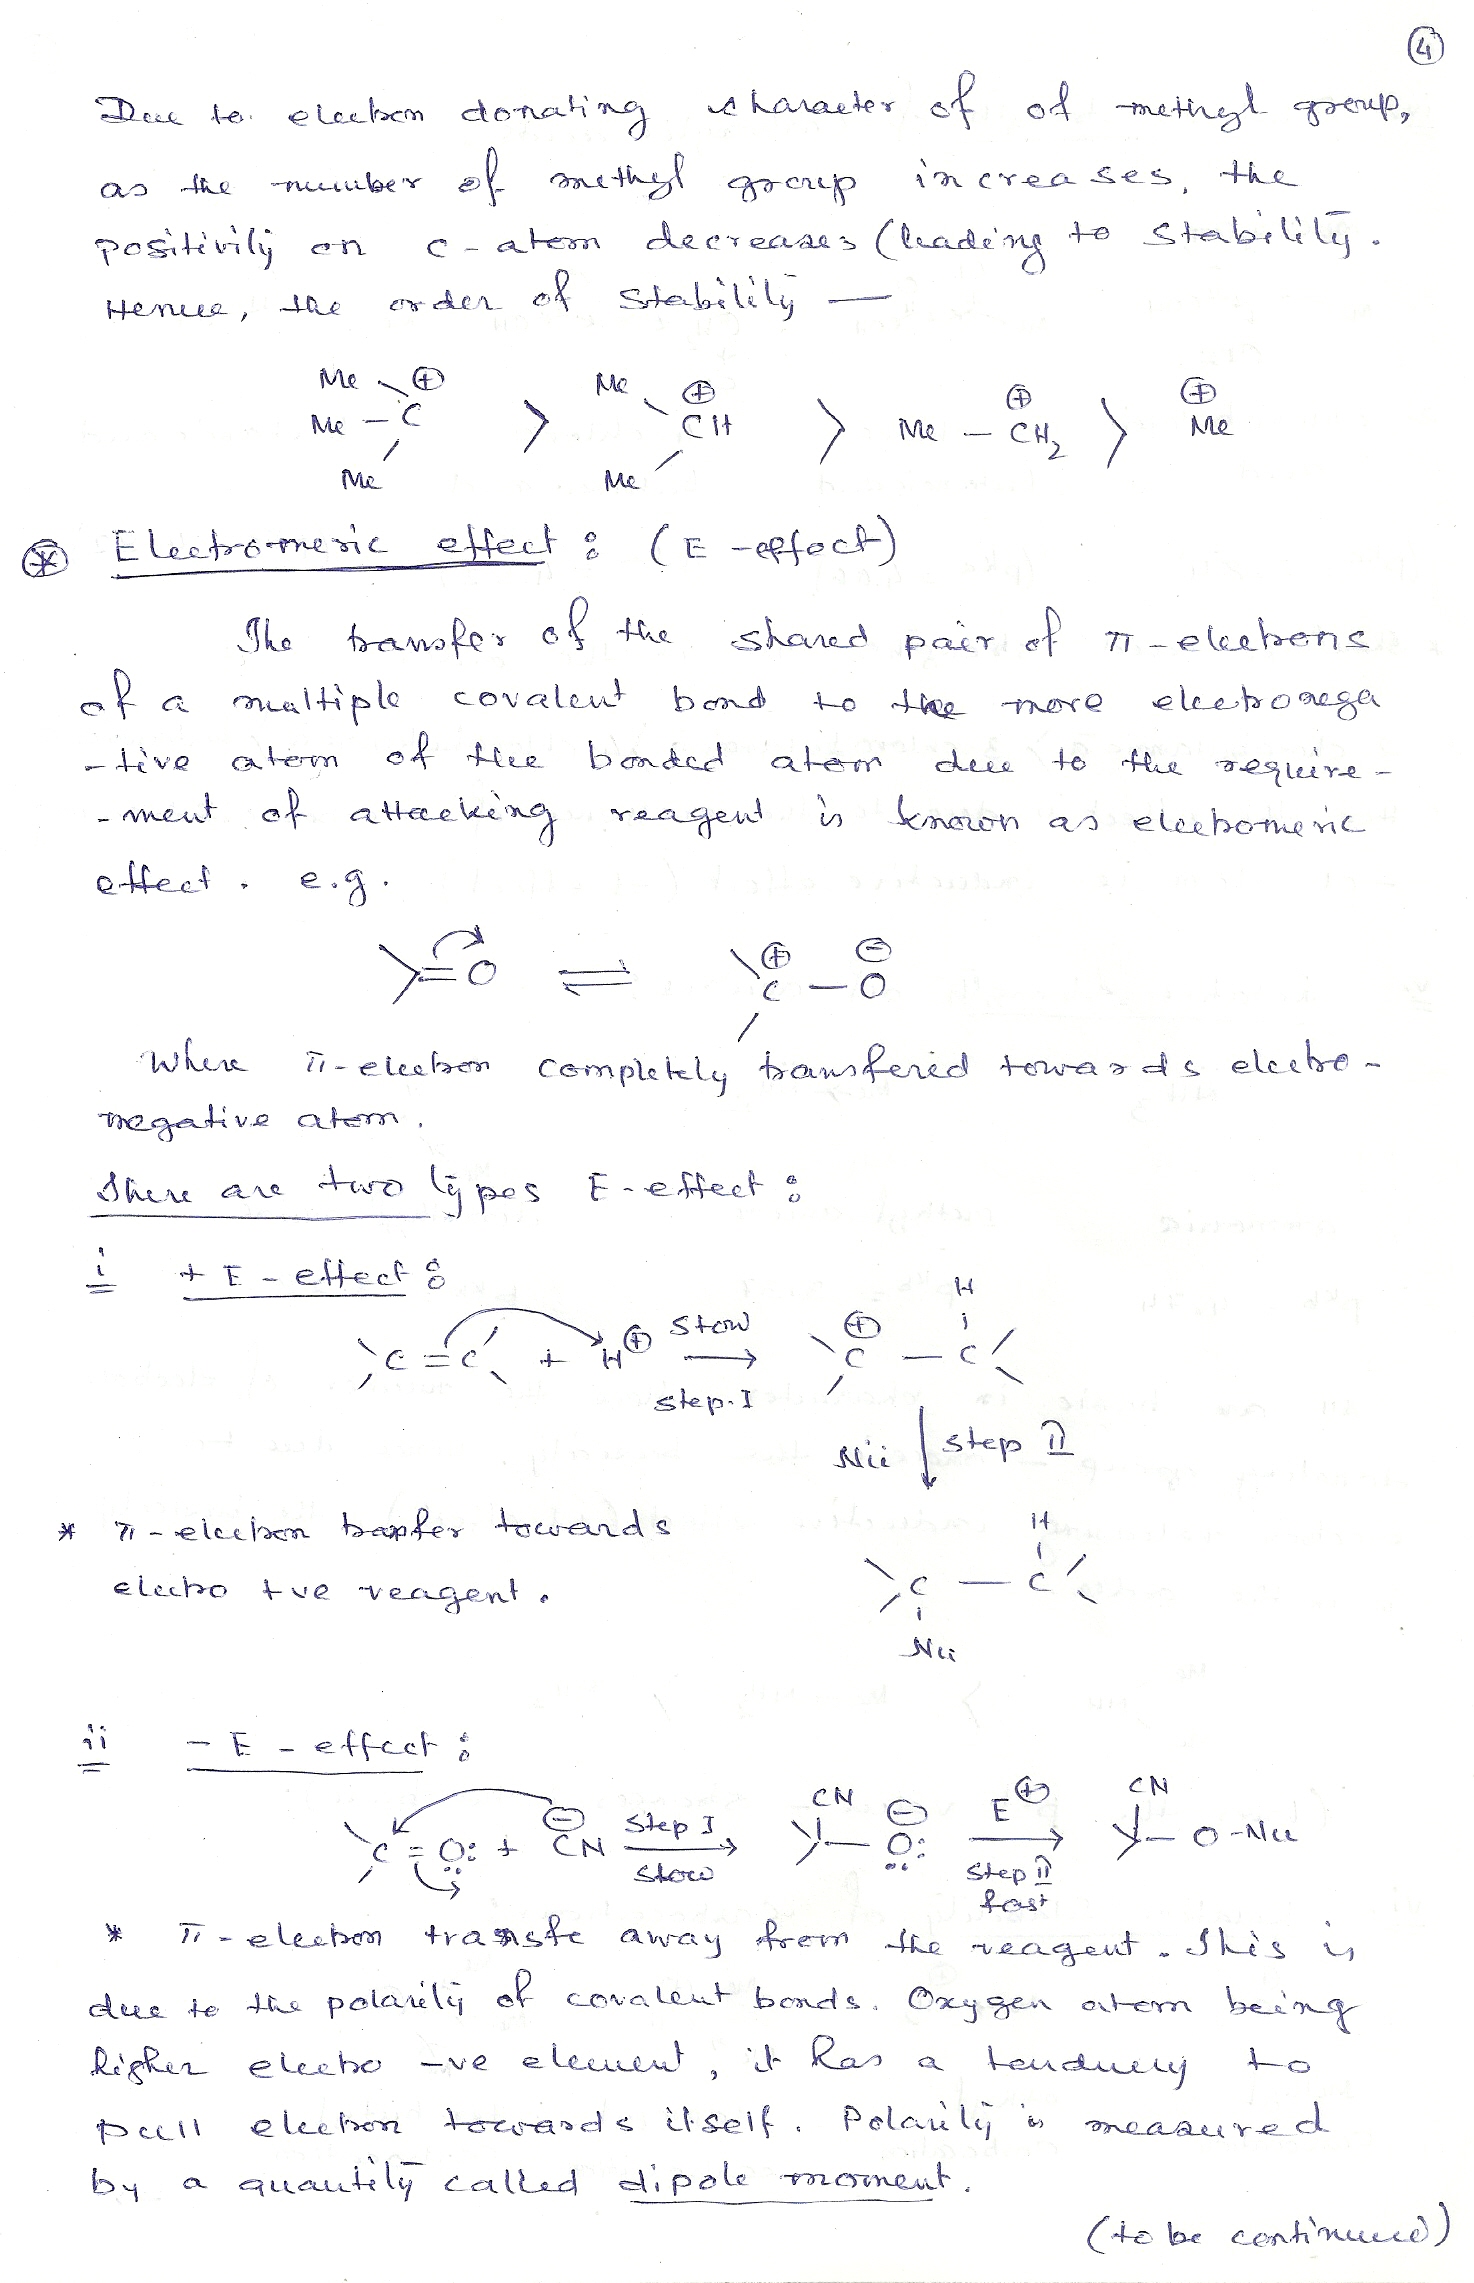 4
Due to electron donating character of of methyl group,
as the number of methyl group increases, the
positivity on c-atom decreases (leading to stability.
Hence, the order of stability —
Me ⊕ Me ⊕ ⊕ ⊕
Me - C > CH > Me - CH2 > Me
Me Me
* Electromeric effect : (E-effect)
The transfer of the shared pair of π-electrons
of a multiple covalent bond to the more electronega
-tive atom of the bonded atom due to the require-
-ment of attacking reagent is known as electromeric
effect. e.g.
=O ⇌ C⊕ - O⊖
Where π-electron completely transfered towards electro-
negative atom.
There are two types E-effect :
i +E-effect :
H
C=C + H⊕ slow → ⊕C - C
step-I
Nu ↓ step II
* π-electron tranfer towards
H
electro +ve reagent.
C - C
Nu
ii -E-effect :
CN E⊕ CN
C=O: + ⊖CN Step I → O:⊖ → O-Nu
slow step II
fast
* π-electron transfe away from the reagent. This is
due to the polarity of covalent bonds. Oxygen atom being
higher electro -ve element, it has a tendency to
pull electron towards itself. Polarity is measured
by a quantity called dipole moment.
(to be continued)